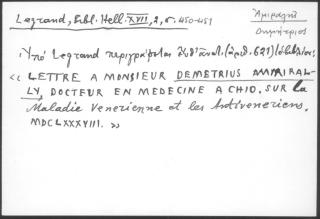 Legrand, Bibl. Hell. XVII, 2, σ. 450-451
Ἀμιραλῆ
Δημήτριος
Ὑπό Legrand περιγράφεται (ἀριθ. 621)
« LETTRE A MONSIEUR DEMETRIUS AMMIRAL-
LY, DOCTEUR EN MEDECINE A CHIO. SUR la
Maladie Venerienne et les Antiveneriens.
MDCLXXXVIII. »